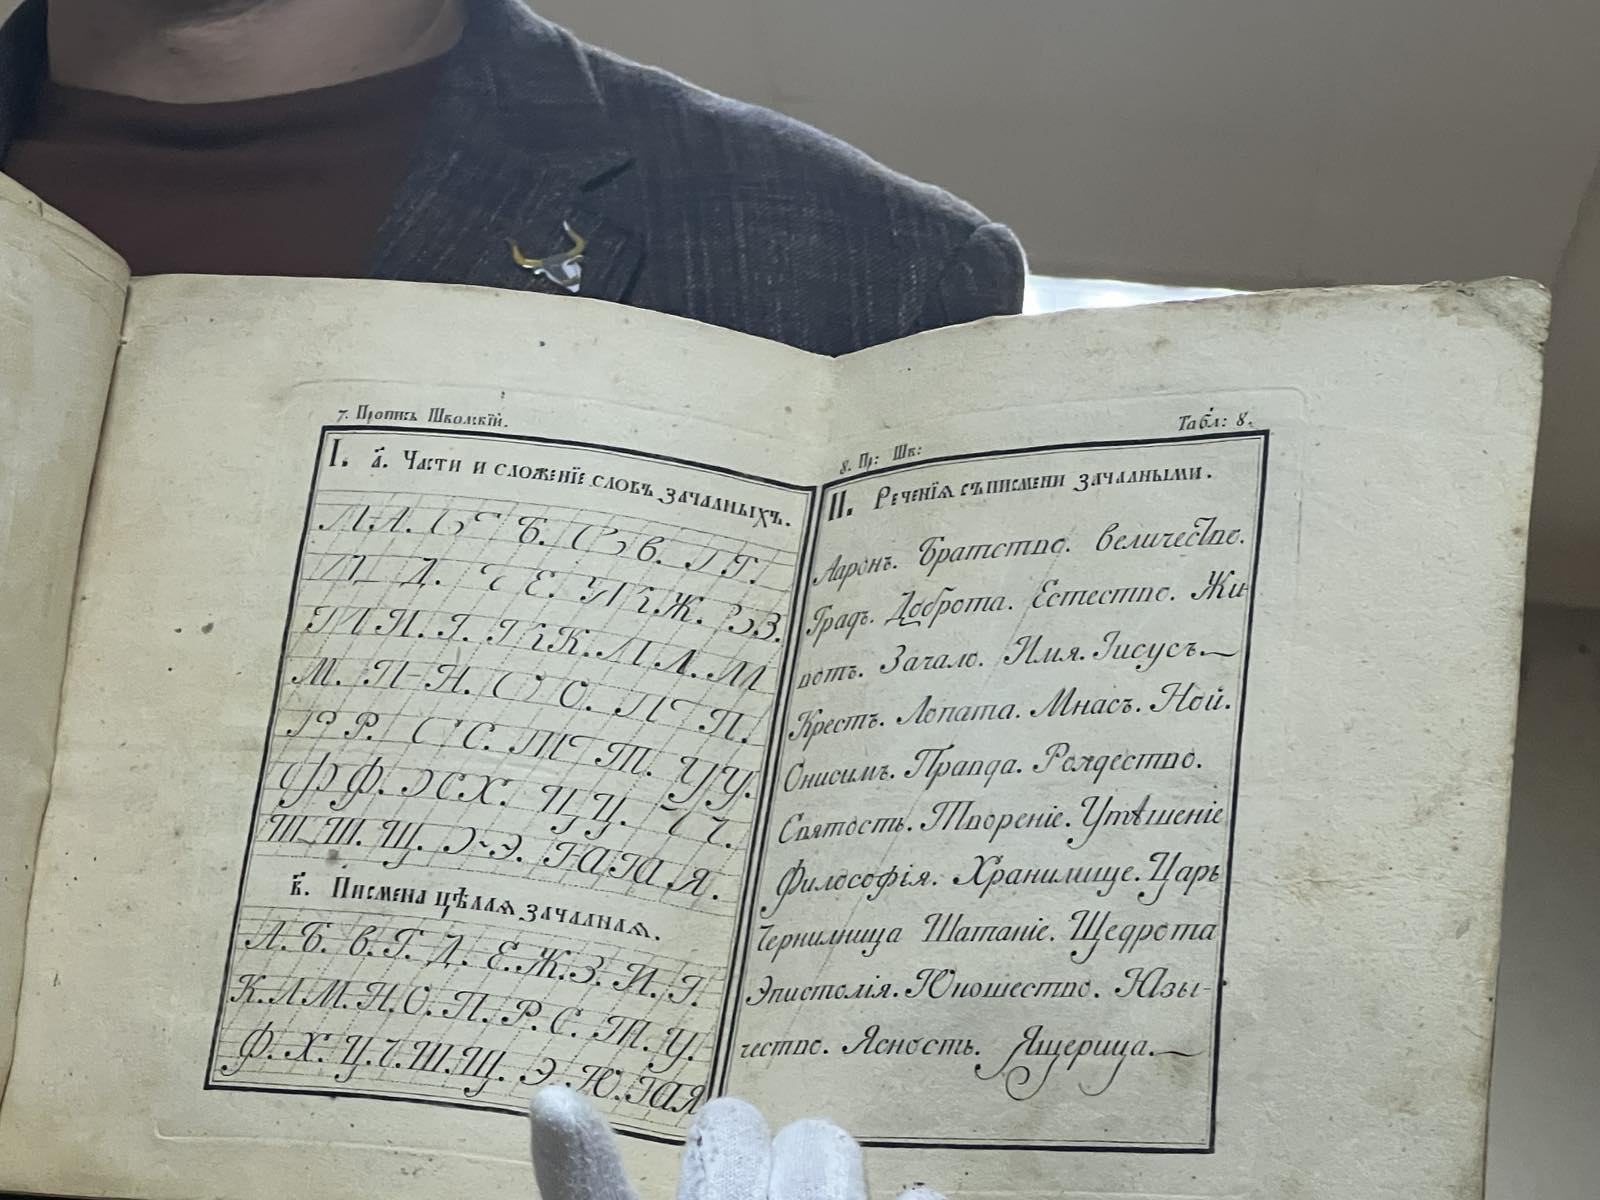 7. Пропись Школскій.
I. а҃. Части и сложенїе словъ зачалныхъ.
Л А. Б. В. Г Г.
Д. Е. Ж. З З.
И. І. К. Л Л.
М. Н. О. П.
Р Р. С С. Т. У У.
Ф Ф. Х. Ц Ц. Ч.
Ш Ш. Щ. Э. Ю Ꙗ Я.
в҃. Писмена цѣлаѧ зачалнаѧ.
А. Б. В. Г. Д. Е. Ж. З. И. І.
К. Л М. Н. О. П. Р. С. Т. У.
Ф. Х. Ц. Ч. Ш. Щ. Э. Ю. Ꙗ Я
8. Пр: Шк: Табл: 8.
II. Реченїѧ съ писмени зачалными.
Ааронъ. Братство. Величество.
Градъ. Доброта. Естество. Жи-
вотъ. Зачало. Имя. Іисусъ.
Крестъ. Лопата. Мнасъ. Ной.
Онисимъ. Правда. Рождество.
Святость. Твореніе. Утѣшеніе
Философія. Хранилище. Царь
Чернилница Шатаніе. Щедрота
Эпистолія. Юношество. Ꙗзы-
чество. Ясность. Ящерица.